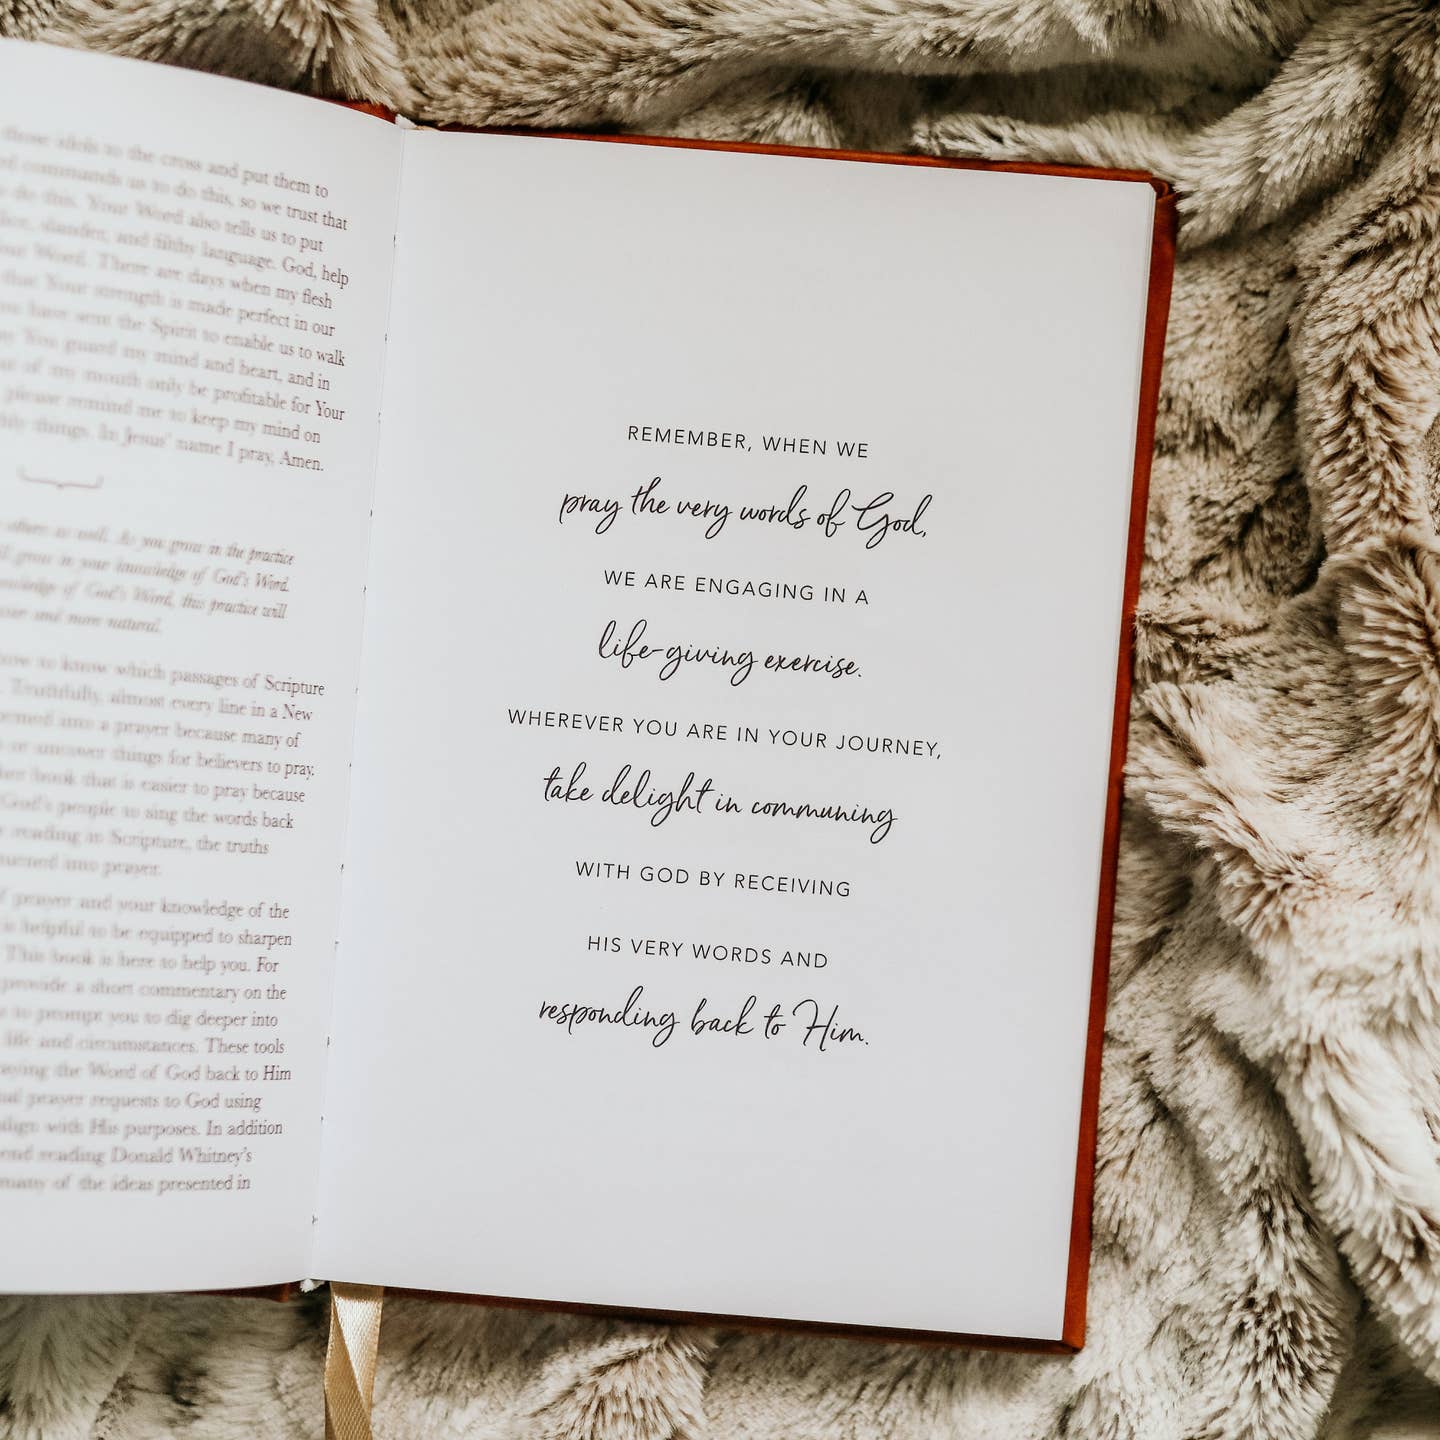 those idols to the cross and put them to
commands us to do this, so we trust that
do this. Your Word also tells us to put
slander, and filthy language. God, help
Your Word. There are days when my flesh
that Your strength is made perfect in our
have sent the Spirit to enable us to walk
You guard my mind and heart, and in
out of my mouth only be profitable for Your
please remind me to keep my mind on
things. In Jesus' name I pray, Amen.
others as well. As you grow in the practice
grow in your knowledge of God's Word.
knowledge of God's Word, this practice will
and more natural.
how to know which passages of Scripture
Truthfully, almost every line in a New
turned into a prayer because many of
or uncover things for believers to pray.
book that is easier to pray because
God's people to sing the words back
reading in Scripture, the truths
turned into prayer.
of prayer and your knowledge of the
is helpful to be equipped to sharpen
This book is here to help you. For
provide a short commentary on the
to prompt you to dig deeper into
life and circumstances. These tools
praying the Word of God back to Him
prayer requests to God using
align with His purposes. In addition
reading Donald Whitney's
many of the ideas presented in
REMEMBER, WHEN WE
pray the very words of God,
WE ARE ENGAGING IN A
life-giving exercise.
WHEREVER YOU ARE IN YOUR JOURNEY,
take delight in communing
WITH GOD BY RECEIVING
HIS VERY WORDS AND
responding back to Him.